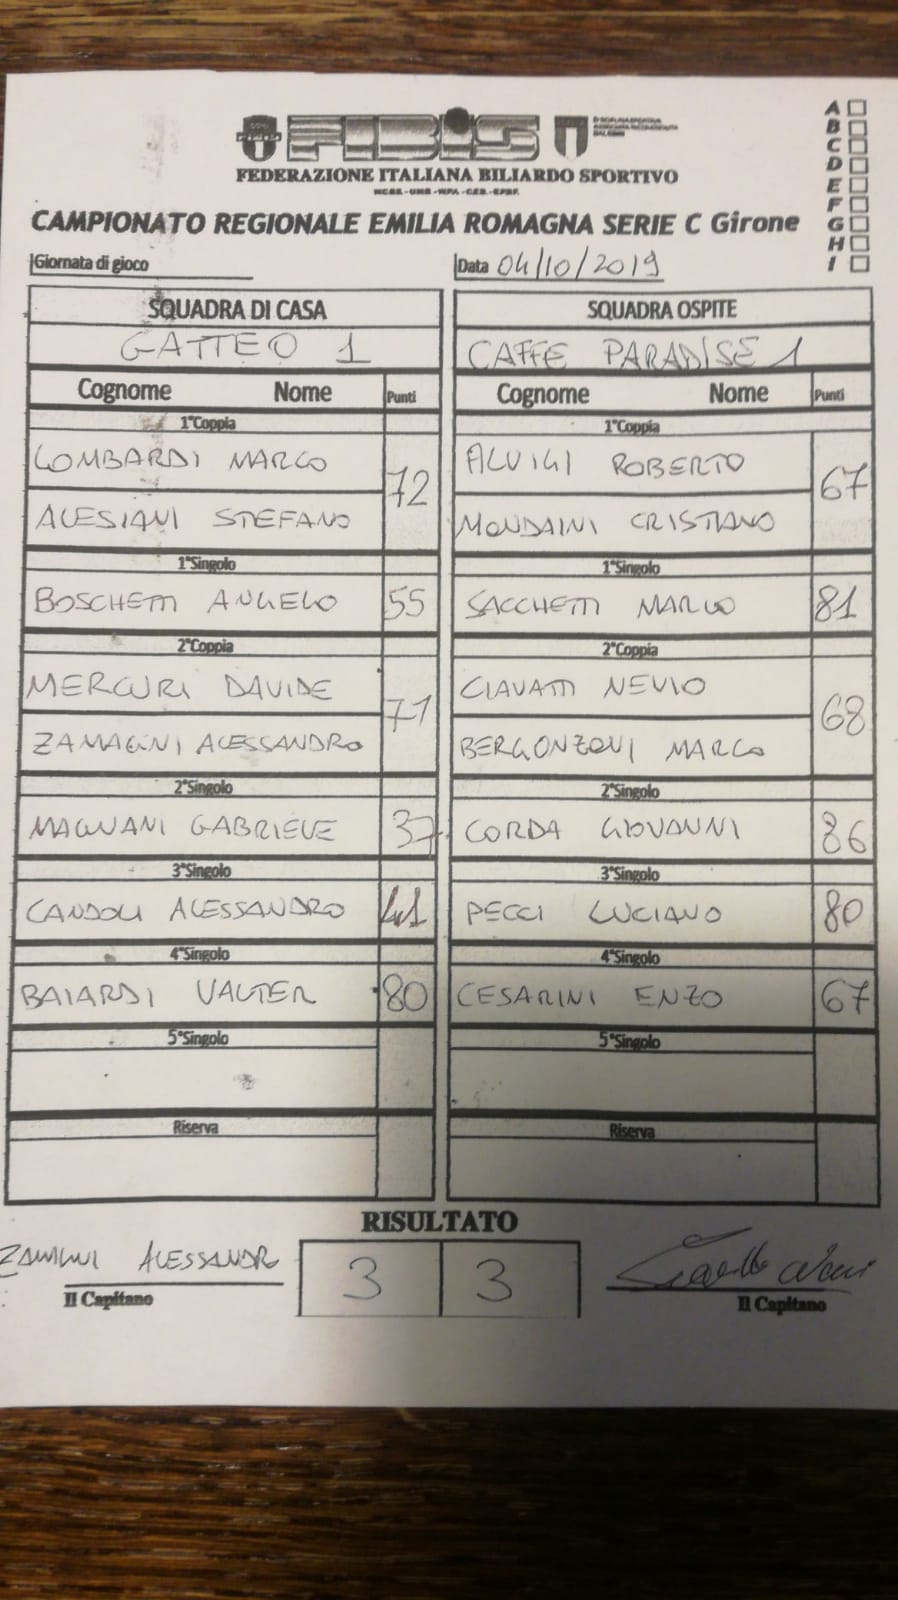 FIBIS
FEDERAZIONE ITALIANA BILIARDO SPORTIVO
CAMPIONATO REGIONALE EMILIA ROMAGNA SERIE C Girone
A
B
C
D
E
F
G
H
I
Giornata di gioco
Data 04/10/2019
SQUADRA DI CASA
GATTEO 1
Cognome Nome Punti
1°Coppia
LOMBARDI MARCO
72
ALESIANI STEFANO
1°Singolo
BOSCHETTI ANGELO 55
2°Coppia
MERCURI DAVIDE
71
ZAMAGNI ALESSANDRO
2°Singolo
MAGNANI GABRIELE 37
3°Singolo
CANDOLI ALESSANDRO 41
4°Singolo
BAIARDI VALTER 80
5°Singolo
Riserva
SQUADRA OSPITE
CAFFE PARADISE 1
Cognome Nome Punti
1°Coppia
ALUIGI ROBERTO
67
MONDAINI CRISTIANO
1°Singolo
SACCHETTI MARCO 81
2°Coppia
CIAVATTI NEVIO
68
BERGONZONI MARCO
2°Singolo
CORDA GIOVANNI 86
3°Singolo
PECCI LUCIANO 80
4°Singolo
CESARINI ENZO 67
5°Singolo
Riserva
RISULTATO
3 3
ALESSANDRO
Il Capitano
Il Capitano